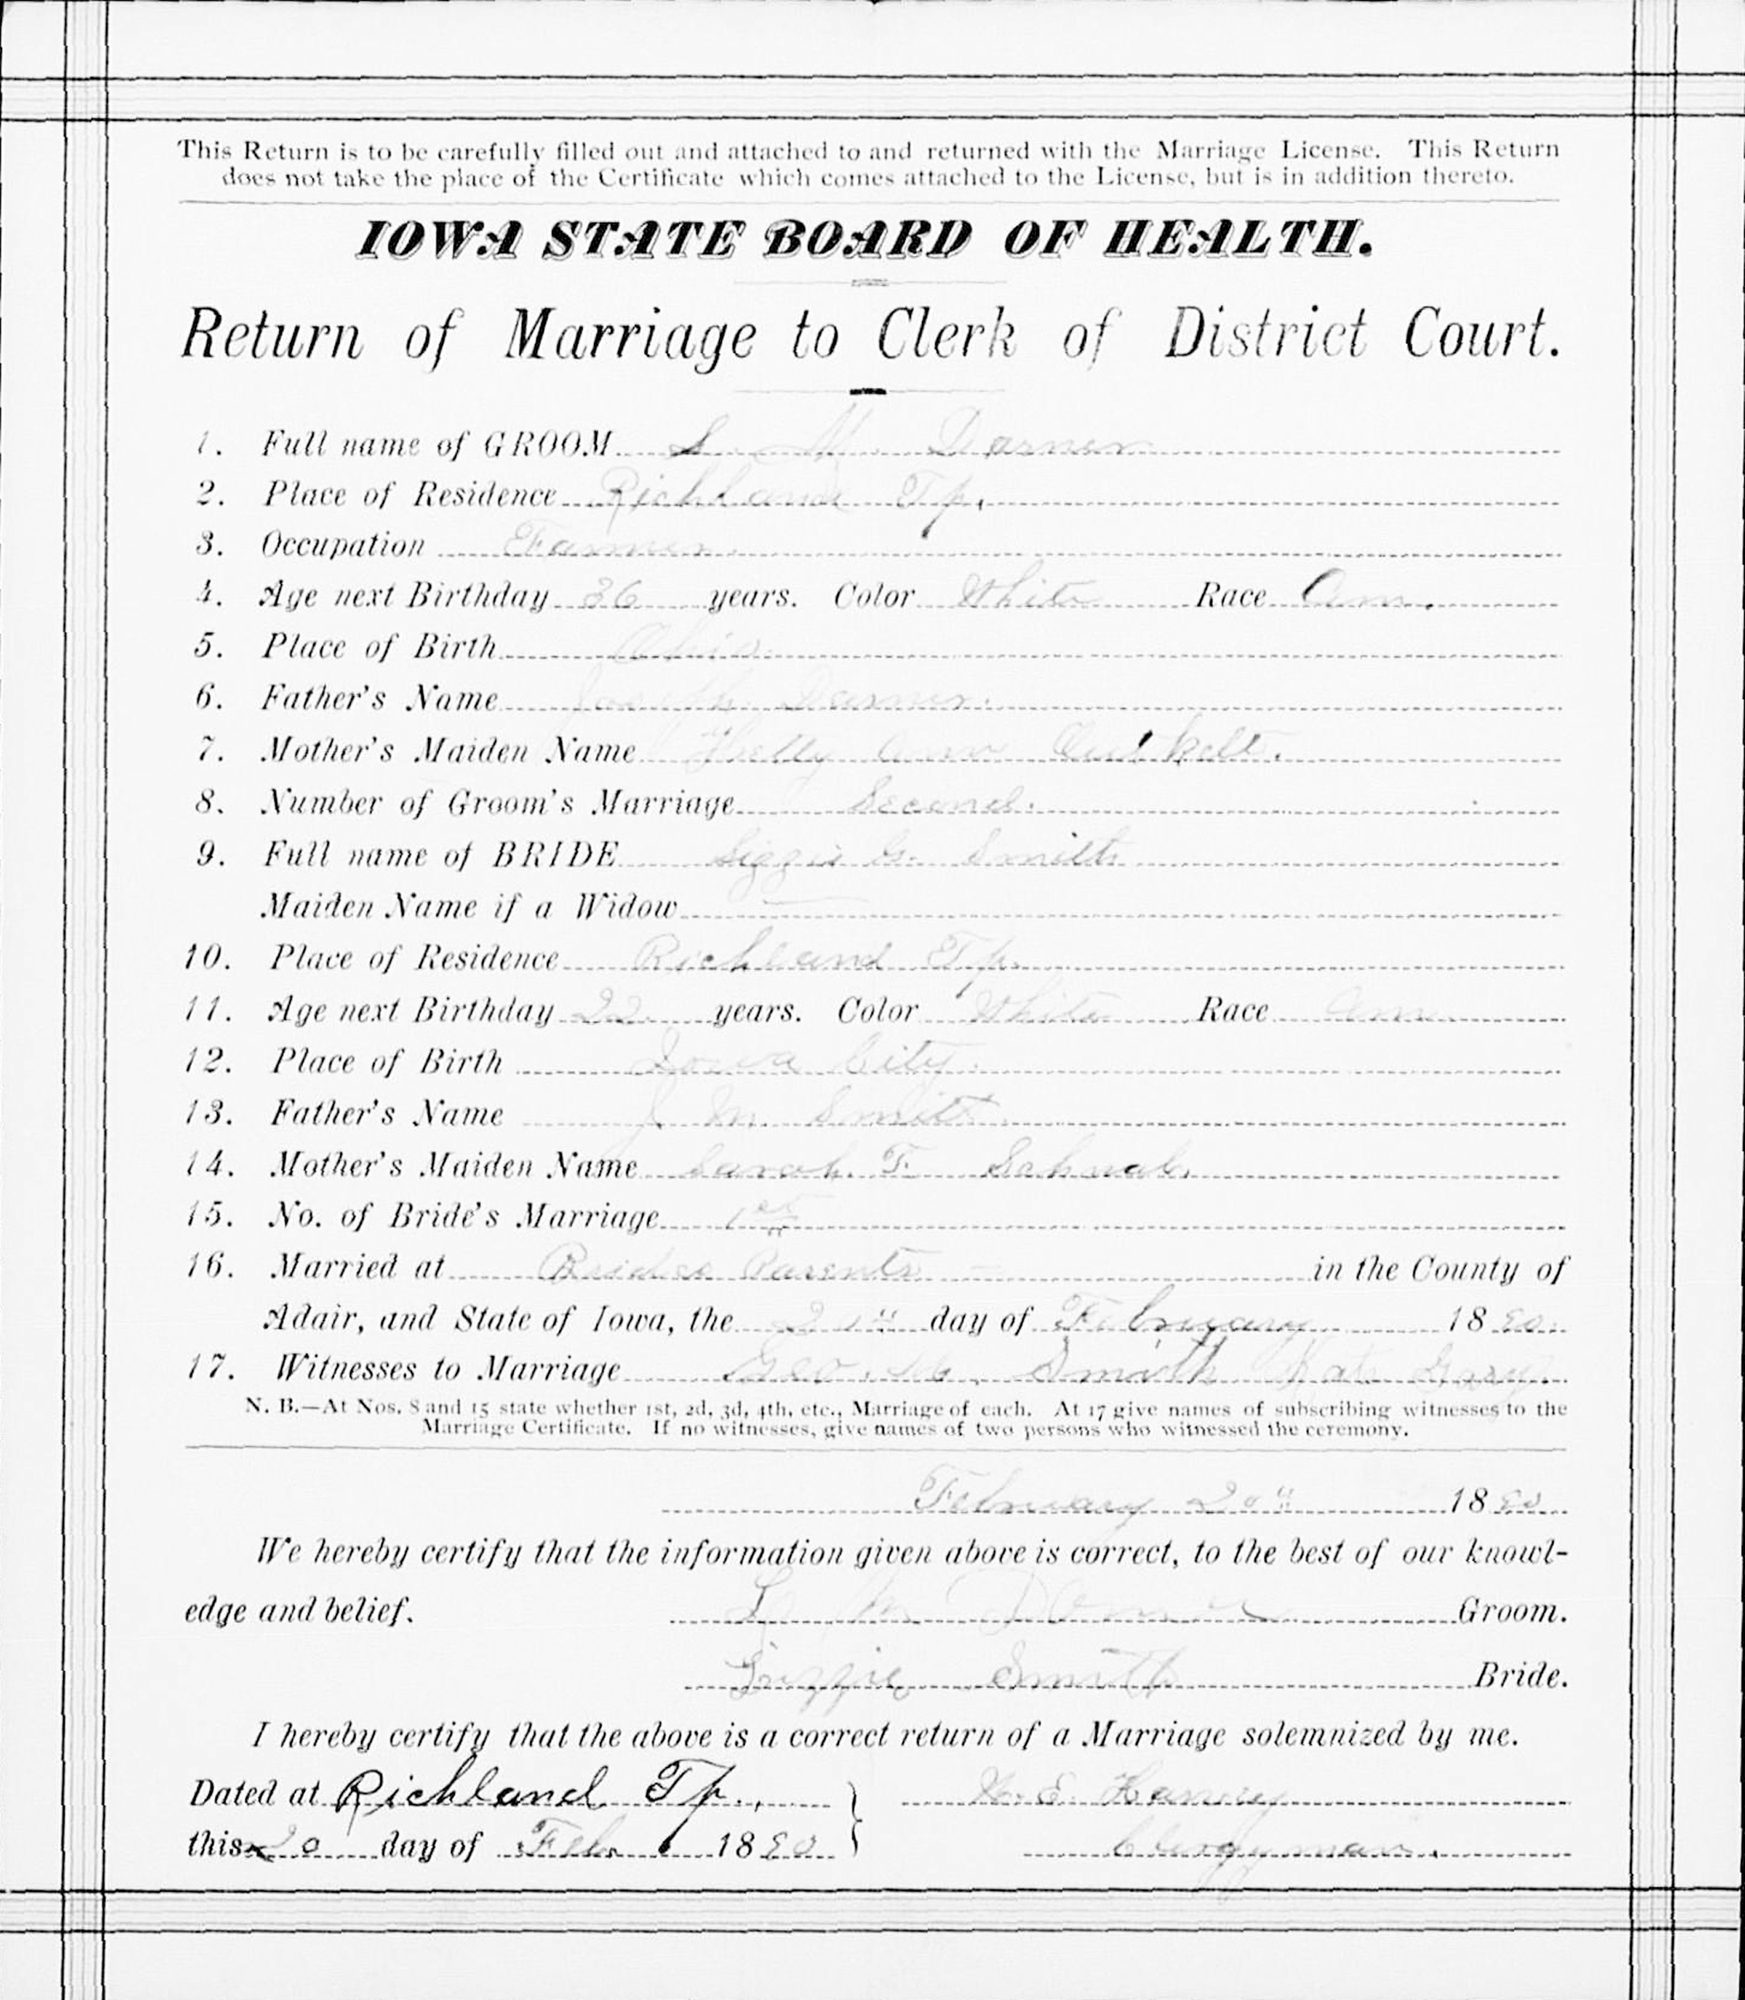 This Return is to be carefully filled out and attached to and returned with the Marriage License. This Return
does not take the place of the Certificate which comes attached to the License, but is in addition thereto.
IOWA STATE BOARD OF HEALTH.
Return of Marriage to Clerk of District Court.
1. Full name of GROOM S. M. Darner
2. Place of Residence Richland Tp.
3. Occupation Farmer.
4. Age next Birthday 36 years. Color White Race Am.
5. Place of Birth Ohio.
6. Father's Name Joseph Darner.
7. Mother's Maiden Name Hetty Ann
8. Number of Groom's Marriage Second.
9. Full name of BRIDE Lizzie G. Smith
Maiden Name if a Widow —
10. Place of Residence Richland Tp.
11. Age next Birthday 22 years. Color White Race Am.
12. Place of Birth Iowa City.
13. Father's Name J. M. Smith.
14. Mother's Maiden Name Sarah. F. Schwab.
15. No. of Bride's Marriage 1st
16. Married at Brides Parents — in the County of
Adair, and State of Iowa, the day of February 18
17. Witnesses to Marriage Geo. Smith
N. B.—At Nos. 8 and 15 state whether 1st, 2d, 3d, 4th, etc., Marriage of each. At 17 give names of subscribing witnesses to the
Marriage Certificate. If no witnesses, give names of two persons who witnessed the ceremony.
February 20th 18
We hereby certify that the information given above is correct, to the best of our knowl-
edge and belief. S M Darner Groom.
Lizzie Smith Bride.
I hereby certify that the above is a correct return of a Marriage solemnized by me.
Dated at Richland Tp., E. Harvey
this 20 day of Feb. 18 Clergyman.